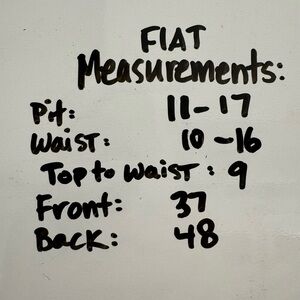 FlAT
Measurements:
Pit: 11-17
Waist: 10-16
Top to waist: 9
Front: 37
Back: 48